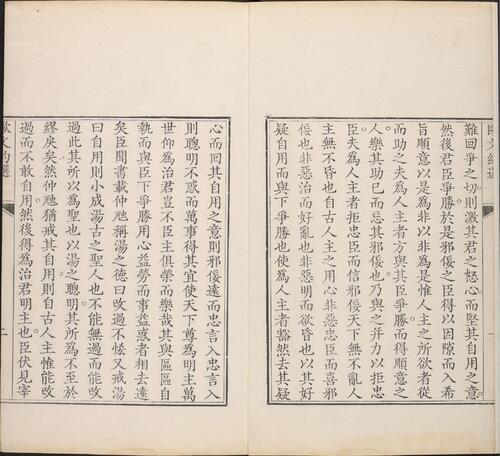 歐文約選
一
難回爭之切則激其君之怒心而堅其自用之意
然後君臣爭勝於是邪佞之臣得以因隙而入希
旨順意以是為非以非為是惟人主之所欲者從
而助之夫為人主者方與其臣爭勝而得順意之
人樂其助己而忘其邪佞也乃與之并力以拒忠
臣夫為人主者拒忠臣而信邪佞天下無不亂人
主無不昏也自古人主之用心非惡忠臣而喜邪
佞也非惡治而好亂也非惡明而欲昏也以其好
疑自用而與下爭勝也使為人主者豁然去其疑
心而回其自用之意則邪佞遠而忠言入忠言入
則聰明不惑而萬事得其宜使天下尊為明主萬
世仰為治君豈不臣主俱榮而樂哉其與區區自
執而與臣下爭勝用心益勞而事益惑者相去遠
矣臣聞書載仲虺稱湯之德曰改過不悋又戒湯
曰自用則小成湯古之聖人也不能無過而能改
過此其所以為聖也以湯之聰明其所為不至於
繆戾矣然仲虺猶戒其自用則自古人主惟能改
過而不敢自用然後得為治君明主也臣伏見宰
歐文約選
二